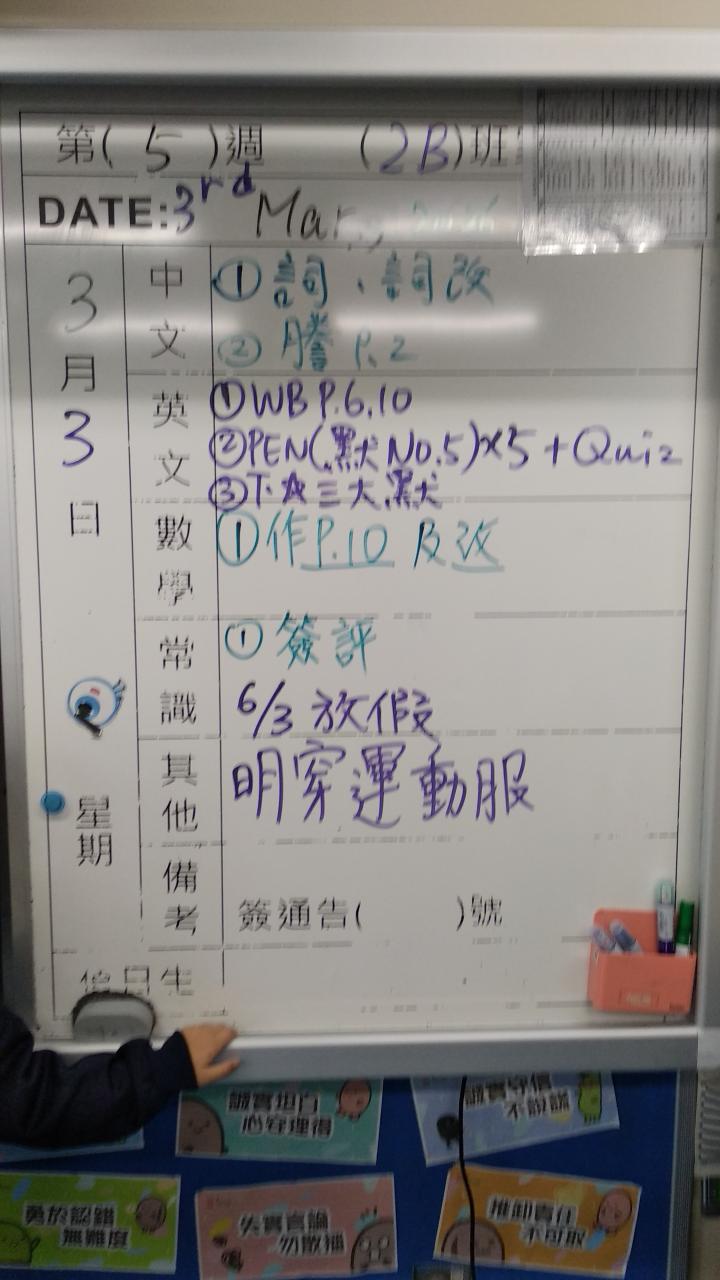 第( 5 )週 (2B)班
DATE: 3rd Mar,
3月3日
星期
中文
①詞、詞改
②謄 P.2
英文
①WB P.6,10
②PEN(默No.5)x5+Quiz
③下星三大默
數學
①作P.10 及改
常識
①簽評
6/3 放假
其他
明穿運動服
備考
簽通告( )號
值日生
誠實坦白
心安理得
誠實守信
不說謊
勇於認錯
無難度
失實言論
勿散播
推卸責任
不可取